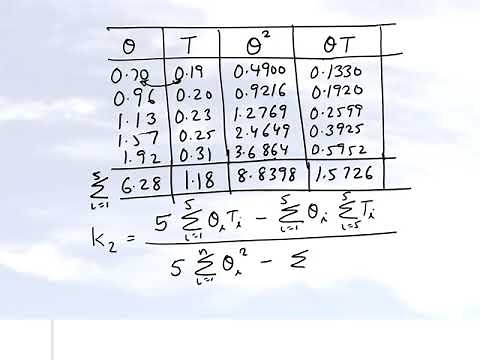 θ T θ² θT
0.70 0.19 0.4900 0.1330
0.96 0.20 0.9216 0.1920
1.13 0.23 1.2769 0.2599
1.57 0.25 2.4649 0.3925
1.92 0.31 3.6864 0.5952
∑_{i=1}^{5} 6.28 1.18 8.8398 1.5726
k₂ = (5 ∑_{i=1}^{5} θᵢTᵢ − ∑_{i=1}^{5} θᵢ ∑_{i=5}^{5} Tᵢ) /
5 ∑_{i=1}^{n} θᵢ² − ∑